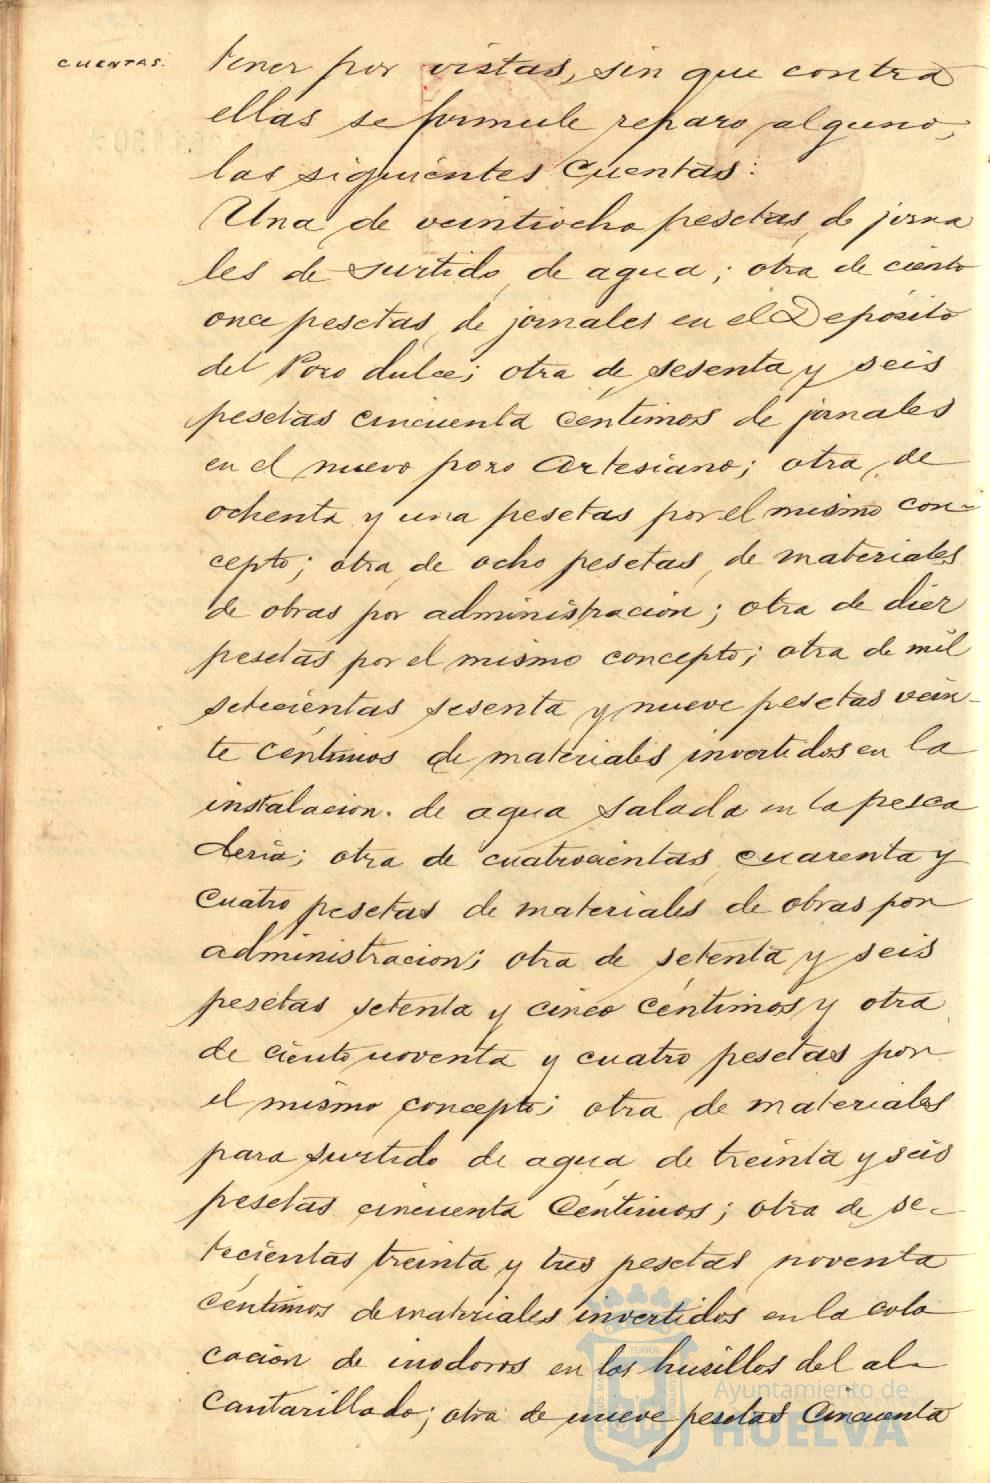 CUENTAS.
tener por vistas, sin que contra
ellas se formule reparo alguno,
las siguientes Cuentas:
Una de veintiocho pesetas, de jorna
les de surtido, de agua; otra de ciento
once pesetas, de jornales en el Depósito
del Pozo dulce; otra de sesenta y seis
pesetas cincuenta céntimos de jornales
en el nuevo pozo Artesiano; otra, de
ochenta y una pesetas por el mismo con-
cepto; otra, de ocho pesetas, de materiales
de obras por administración; otra de diez
pesetas por el mismo concepto; otra de mil
setecientas sesenta y nueve pesetas vein-
te céntimos de materiales invertidos en la
instalacion. de agua salada en la pesca
deria; otra de cuatrocientas, cuarenta y
cuatro pesetas de materiales de obras por
administracion; otra de setenta y seis
pesetas setenta y cinco céntimos y otra
de ciento noventa y cuatro pesetas por
el mismo concepto; otra de materiales
para surtido de agua de treinta y seis
pesetas cincuenta Céntimos; otra de se-
tecientas treinta y tres pesetas noventa
céntimos de materiales invertidos en la colo
cación de inodoros en los husillos del al-
cantarillado; otra de nueve pesetas Cincuenta
Ayuntamiento de
HUELVA